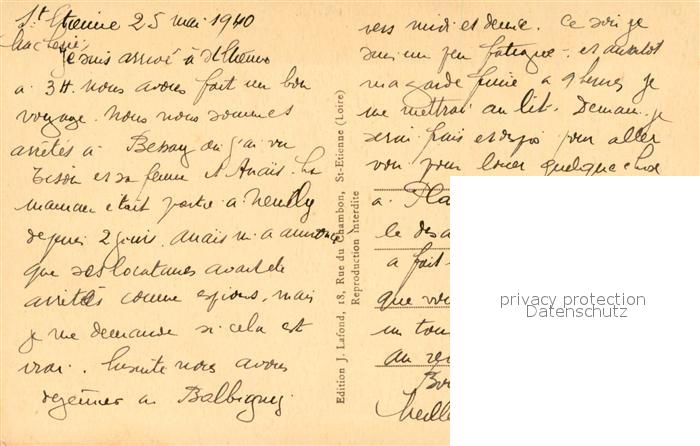 St Etienne 25 mai 1940
Ma chérie,
Je suis arrivé à St Etienne
à 3H. nous avons fait un bon
voyage. Nous nous sommes
arrêtés à Bessay où j'ai vu
Tison et sa femme et Anaïs. Sa
maman était partie à Neuilly
depuis 2 jours. Anaïs m'a annoncé
que ses locataires avaient été
arrêtés comme espions, mais
je me demande si cela est
vrai. Ensuite nous avons
déjeuner à Balbigny
vers midi et demie. Ce soir je
suis un peu fatigué et aussitôt
ma garde finie à 9 heures je
me mettrai au lit. Demain je
serai frais et dispo pour aller
voir pour louer quelque chose
à Pla
le des a
a fait
que vou
un tou
au re
Bo
Meille
Edition J. Lafond, 18, Rue du Chambon, St-Etienne (Loire)
Reproduction interdite
privacy protection
Datenschutz